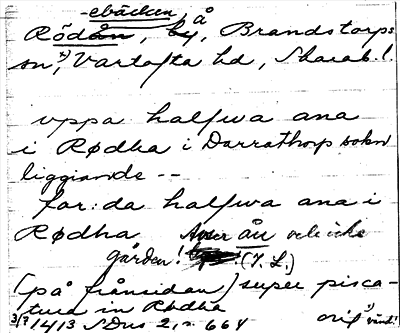 -ebäcken, å
Rödån, by, Brandstorps
sn, Vartofta hd, Skarab. l.
uppa halfwa ana
i Rødha i Darrathorp sokn
liggiande --
for:da halfwa ana i
Rødha Avser ån och icke
gården! (I. L.)
(på frånsidan) super pisca-
tura in Rødha
3/7 1413 SDns 2, s 664 orig vänd!